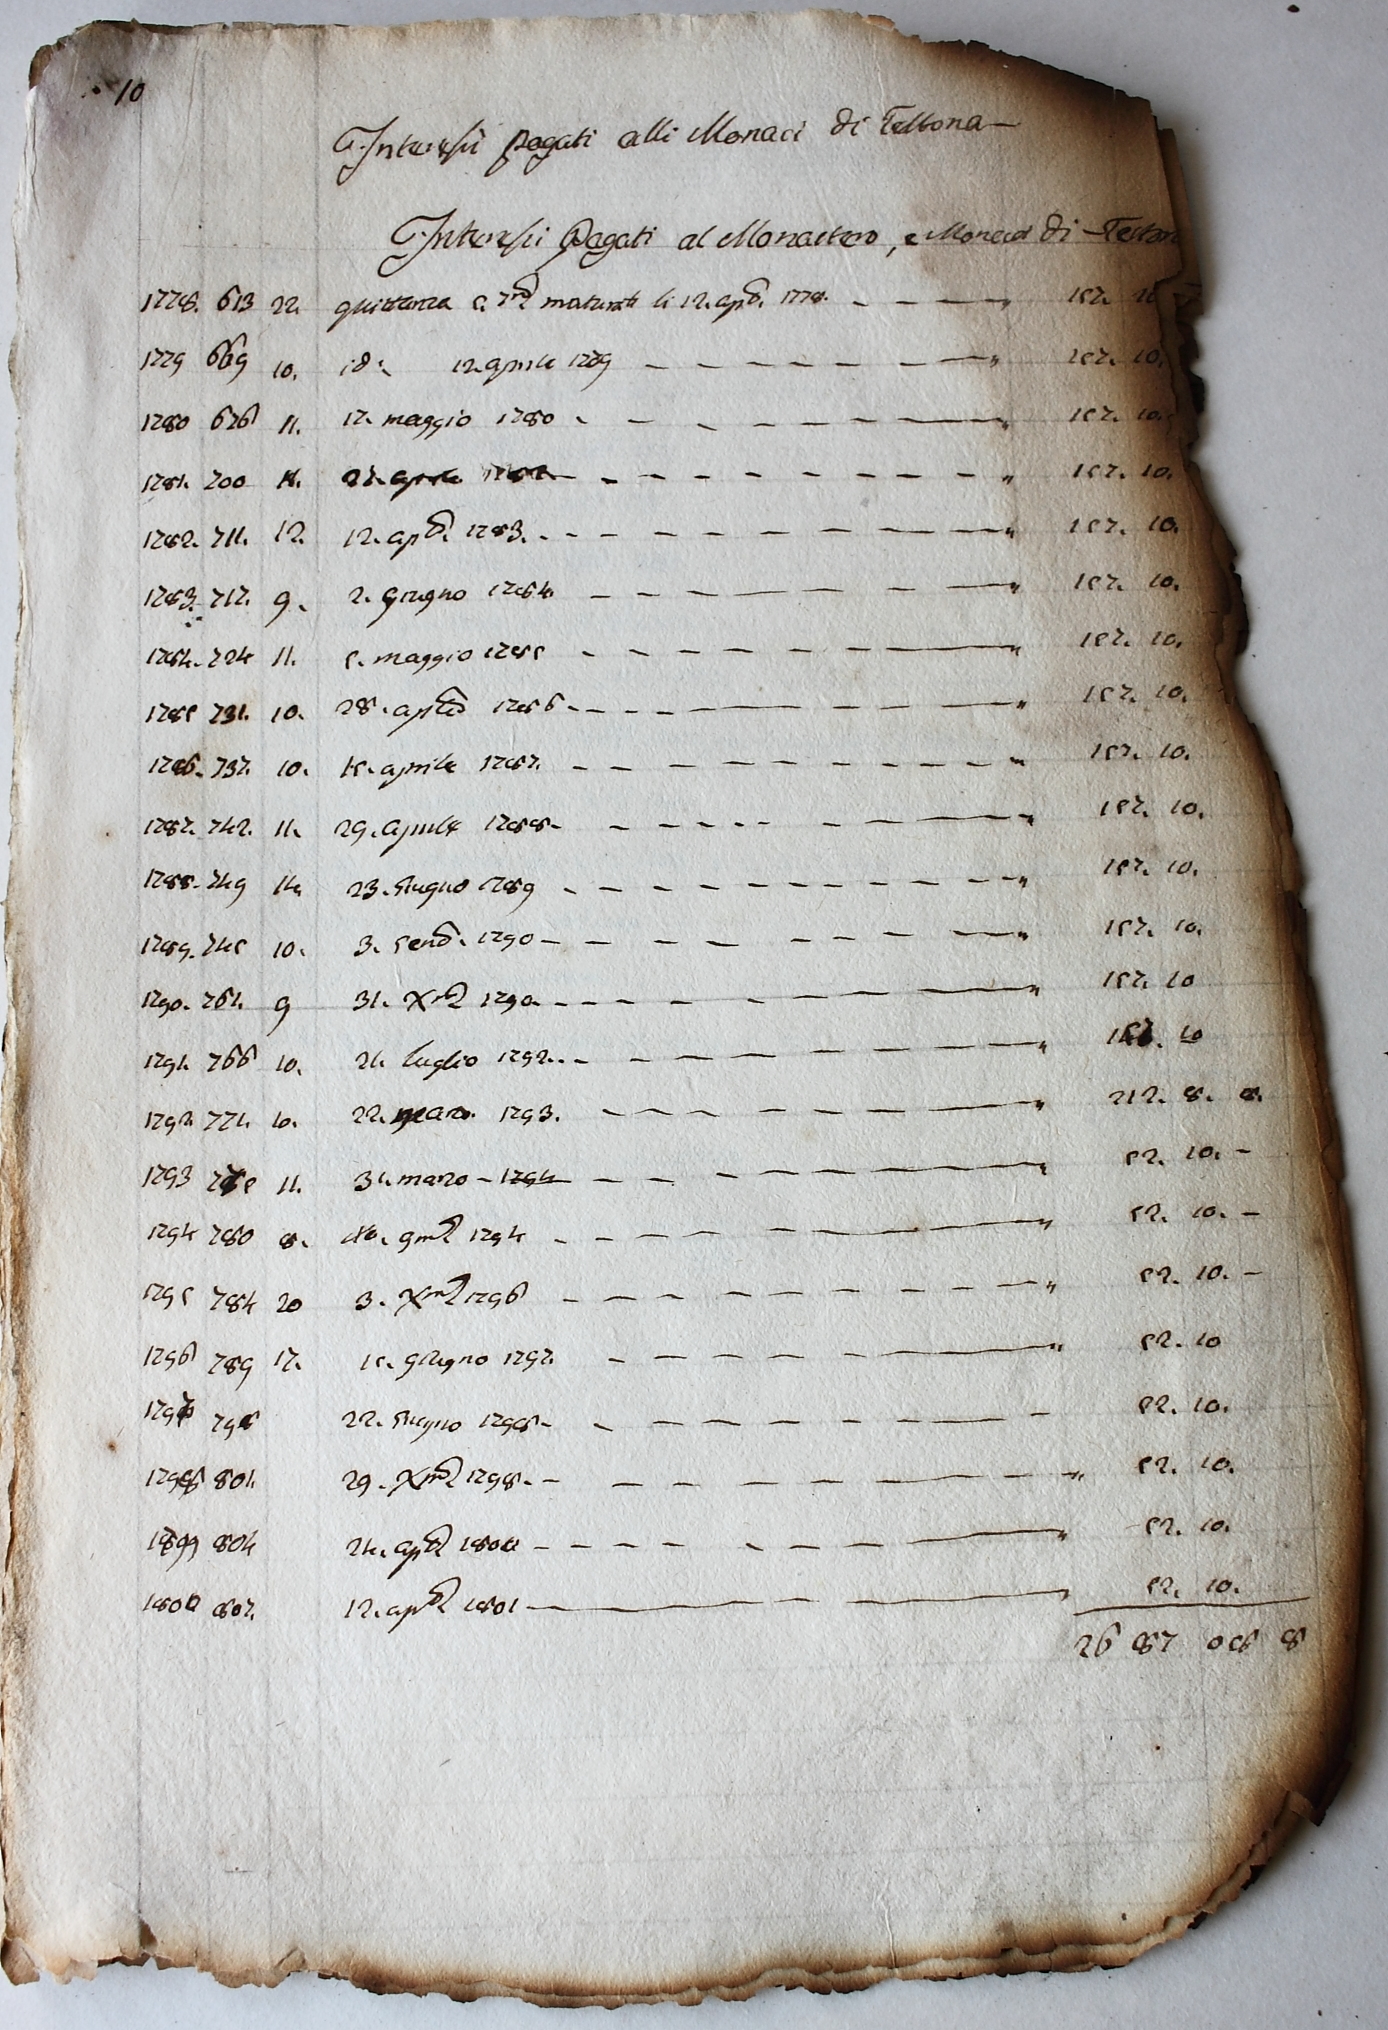 10
Interessi pagati alli Monaci di Testona
Interessi Pagati al Monastero, e Monaci di Teston
1778. 613 22. quittanza 5. 7mbre maturati li 12. aple. 1778. 157. 10
1779 669 10. id: 12. aprile 1779 157. 10.
1780 676 11. 17. maggio 1780 157. 10.
1781. 700 11. 157. 10.
1782. 711. 12. 12. aple. 1783. 157. 10.
1783. 717. 9. 2. giugno 1784. 157. 10.
1784. 724 11. 5. maggio 1785 157. 10.
1785 731. 10. 28. aple 1786 157. 10.
1786. 737. 10. 15. aprile 1787. 157. 10.
1787. 742. 11. 29. aprile 1788 157. 10.
1788. 749 11. 23. giugno 1789 157. 10.
1789. 745 10. 3. 1790 157. 10.
1790. 761. 9 31. Xmbre 1790 157. 10
1791. 766 10. 21. luglio 1792. 157. 10
1792. 771. 10. 22. marzo 1793. 212. 8. 8.
1793 11. 31. marzo 1794 52. 10. -
1794 780 8. 18. 9mbre 1794 52. 10. -
1795 784 20 3. Xmbre 1796 52. 10. -
1796 789 17. 15. giugno 1797. 52. 10
1797 796 22. giugno 1798 52. 10.
1798 801. 29. Xmbre 1798. 52. 10.
1799 804 24. aple 1800 52. 10.
1800 807. 12. aple 1801 52. 10.
26 87 8